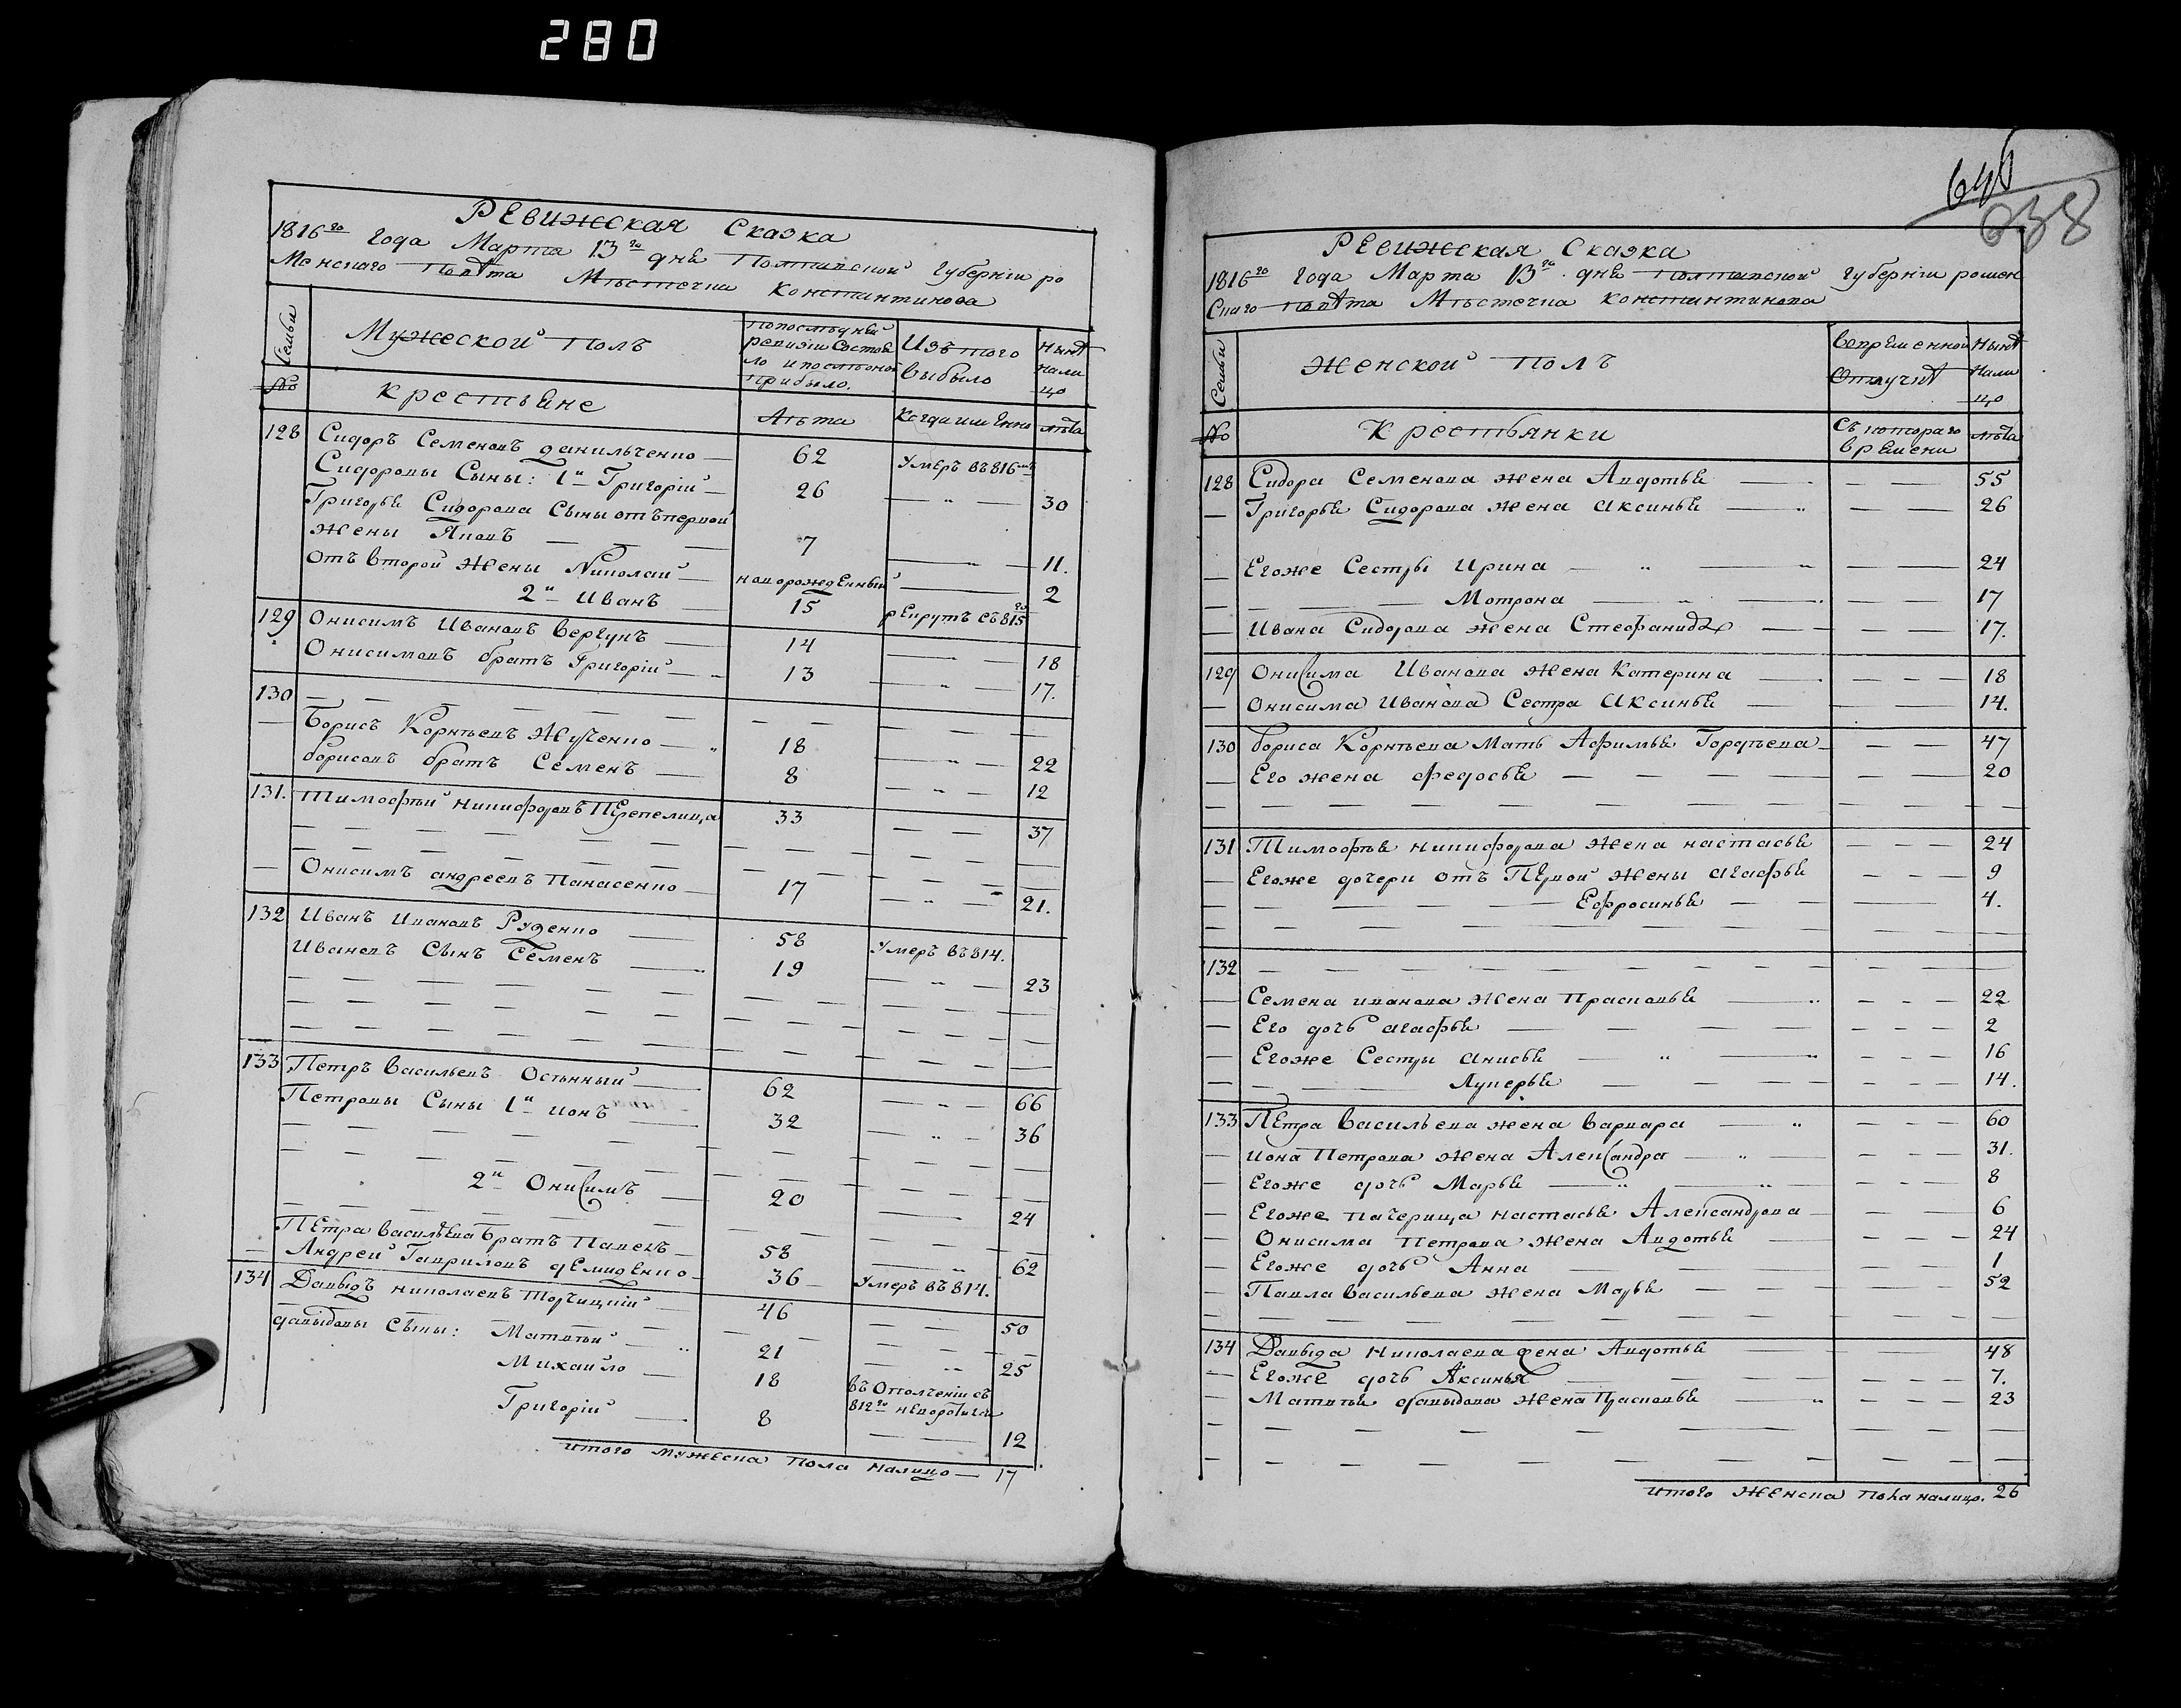 280
Ревижская Сказка
1816го года Марта 13го дня Полтавской губернiи ро
Менскаго Повѣта Мѣстечка Константинова
Семьи
Мужеской полъ
Попослѣдней
ревизiи Состоя
ло ипослѣоной
прибыло.
Изъ того
выбыло
Нынѣ
нали
цо
№
крестьяне
Лѣта
Когда имянно
лѣта
128 Сидоръ Семеновъ данильченко — 62 Умеръ въ 816мъ
Сидоровы Сыны: 1й Григорiй — 26 — „ — 30
Григорья Сидорова Сыны отъ первой
жены Яковъ — — — 7 — „ — 11.
отъ второй жены Николай — новорожденный — 2
2й Иванъ — 15 рекрутъ съ 815го
129 Онисимъ Ивановъ вергунъ — 14 — „ — 18
Онисимовъ братъ Григорiй — „ 13 — „ — 17.
130 — — — — — —
— Борисъ Корнѣевъ Жученко — „ 18 — „ — 22
борисовъ братъ Семенъ — 8 — „ — 12
131. Тимофѣй никифоровъ Перепелица 33 — — 37
— — — — — —
— — — — — —
— Онисимъ андреевъ Панасенко — 17 — „ — 21.
132 Иванъ Ивановъ Руденко — 58 Умеръ въ 814.
Ивановъ Сынъ Семенъ — „ 19 — „ — 23
— — — — — —
— — — — — —
— — — — — —
133 Петръ васильевъ Осѣнный — 62 — „ — 66
Петровы Сыны 1й Ионъ — 32 — „ — 36
— — — — — —
— — — — — —
2й Онисимъ — 20 — 24
— — — — — —
Петра васильева братъ Павелъ — 58 — „ — 62
— Андрей Гавриловъ демиденко — 36 — Умеръ въ 814.
134 Давыдъ николаевъ Торчицкiй — 46 — — 50
давыдовы Сыны: Матвѣй — „ 21 — „ — 25
Михайло — 18 въ Ополченiи съ
812го невозвратился
Григорiй — 8 — — 12
Итого мужеска пола налицо — 17
238
Ревижская Сказка
1816го года Марта 13го дня Полтавской губернiи ромен
Скаго повѣта Мѣстечка Константинова
Семьи
Женской полъ
Вовременной
Отлучкѣ
Нынѣ
Нали
цо
№
Крестьянки
Съ котораго
времени
лѣта
128 Сидора Семенова жена Авдотья — — — 55
— Григорья Сидорова жена Аксинья — „ — — 26
— Егоже Сестры Ирина — „ — „ — — 24
— — — — Мотрона — „ — „ — — 17
— Ивана Сидорова жена Стефанида — — — — 17.
129 Онисима Иванова жена Катерина — — — — 18
— Онисима Иванова Сестра Аксинья — — — — 14.
130 бориса Корнѣева Мать Афимья Гордѣева — — — 47
— Его жена федосья — — — — — — 20
— — — — — — — —
131 Тимофѣя никифорова жена настасья — — — 24
— Егоже дочери отъ Первой жены агафья — — — 9
— — — — — Ефросинья — — — 4.
— — — — — — — —
132 — — — — — — — —
— Семена иванова жена Прасковья — „ — — — 22
— Его дочь агафья — — — — — — 2
— Егоже Сестры анисья — „ — „ — — — 16
— — — Лукерья — — — — — — 14.
133 Петра васильева жена варвара — „ — — — 60
— Иона Петрова жена Александра — „ — — — — 31.
— Егоже дочь Марья — „ — „ — — — 8
— Егоже падчерица настасья Александрова — — — 6
— Онисима Петрова жена Авдотья — — — — 24
— Егоже дочь Анна — — — — — — 1
— Павла васильева жена Марья — — — — — — 52
— — — — — — — —
134 Давыда Николаева жена Авдотья — — — 48
— Егоже дочь Аксинья — — — — — — 7.
— Матвѣя давыдова жена Прасковья — „ — — — 23
— — — — — — — —
— — — — — — — —
Итого женска пола налицо. 26